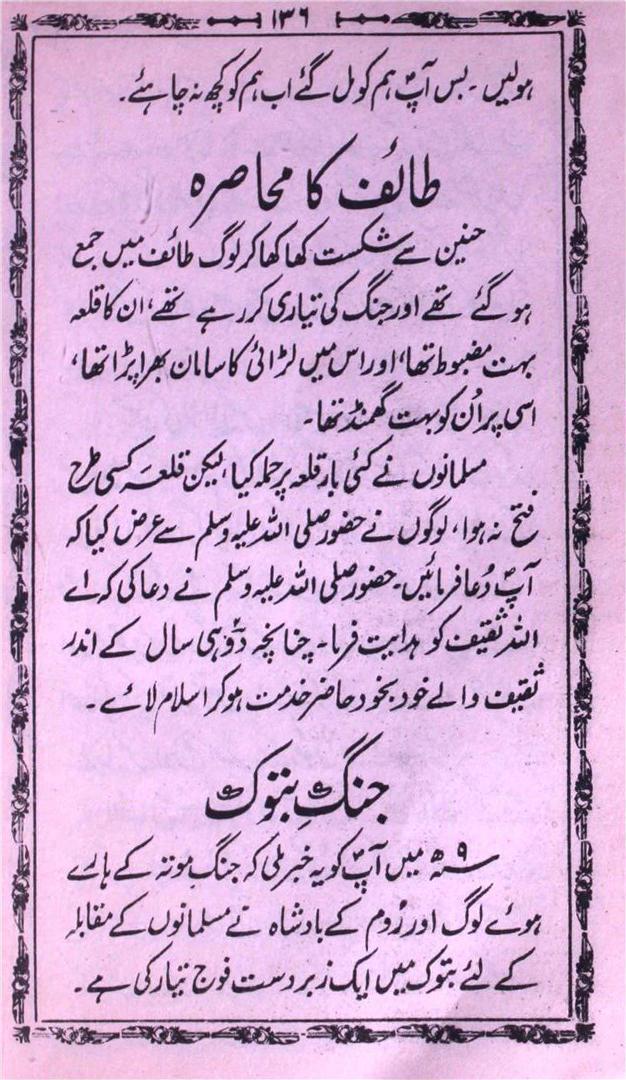 ۱۳۶
ہولیں۔ بس آپؐ ہم کو مل گئے اب ہم کو کچھ نہ چاہئے۔
طائف کا محاصرہ
حنین سے شکست کھا کھا کر لوگ طائف میں جمع
ہو گئے تھے اور جنگ کی تیاری کر رہے تھے، ان کا قلعہ
بہت مضبوط تھا، اور اس میں لڑائی کا سامان بھرا پڑا تھا،
اسی پر اُن کو بہت گھمنڈ تھا۔
مسلمانوں نے کئی بار قلعہ پر حملہ کیا، لیکن قلعہ کسی طرح
فتح نہ ہوا، لوگوں نے حضور صلی اللہ علیہ وسلم سے عرض کیا کہ
آپؐ دُعا فرمائیں۔ حضور صلی اللہ علیہ وسلم نے دعا کی کہ اے
اللہ ثقیف کو ہدایت فرما۔ چنانچہ دو۲ ہی سال کے اندر
ثقیف والے خود بخود حاضر خدمت ہو کر اسلام لائے۔
جنگِ تبوک
۹ سنہ ھ میں آپؐ کو یہ خبر ملی کہ جنگِ موتہ کے ہارے
ہوئے لوگ اور رُوم کے بادشاہ نے مسلمانوں کے مقابلہ
کے لئے تبوک میں ایک زبردست فوج تیار کی ہے۔